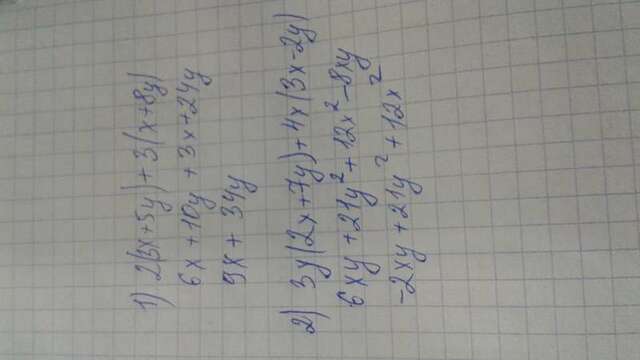 1) 2(3x+5y)+3(x+8y)
6x+10y+3x+24y
9x+34y
2) 3y(2x+7y)+4x(3x-2y)
6xy+21y²+12x²-8xy
-2xy+21y²+12x²